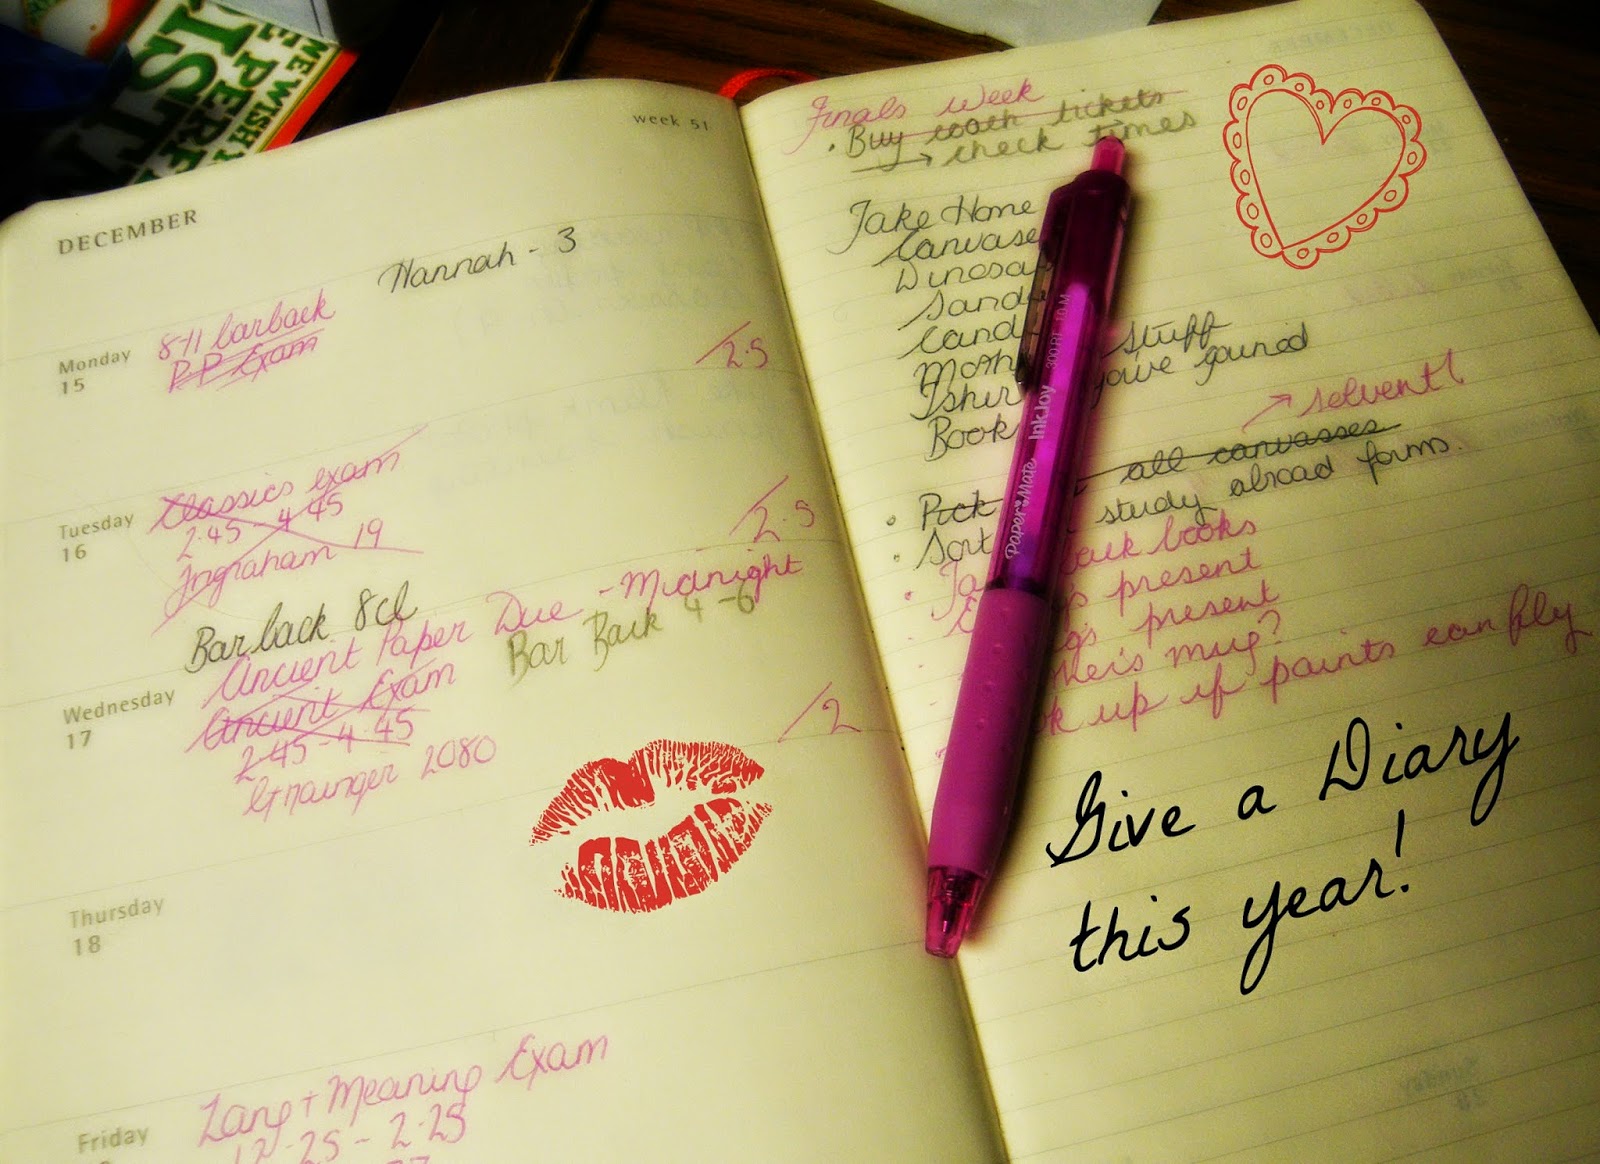 WE WISH
E PER
IST
PERF
week 51
DECEMBER
Hannah - 3
Monday
15
8-11 barback
P.P Exam
/2.5
Tuesday
16
Classics exam
2.45 - 4.45
Ingraham 19
/2.5
Barback 8cl
Wednesday
17
Ancient Paper Due - Midnight
Bar Back 4-6
Ancient Exam
2.45 - 4.45
Grainger 2080
/2
Thursday
18
Friday
Lang + Meaning Exam
12.25 - 2.25
Finals Week
• Buy tickets
→ check times
Take Home
Canvase
Dinosa
Sand
Cand
Moth stuff
Tshir you've gained
Book
→ solvent!
• Pick all canvasses
• Sort study abroad forms.
• Ta back books
present
gs present
mug?
k up if paints can fly
PaperMate InkJoy 300RT 1.0M
Give a Diary
this year!